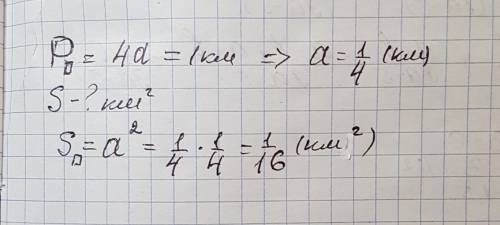 P□ = 4a = 1км => a = 1/4 (км)
S - ? км²
S□ = a² = 1/4 · 1/4 = 1/16 (км²)